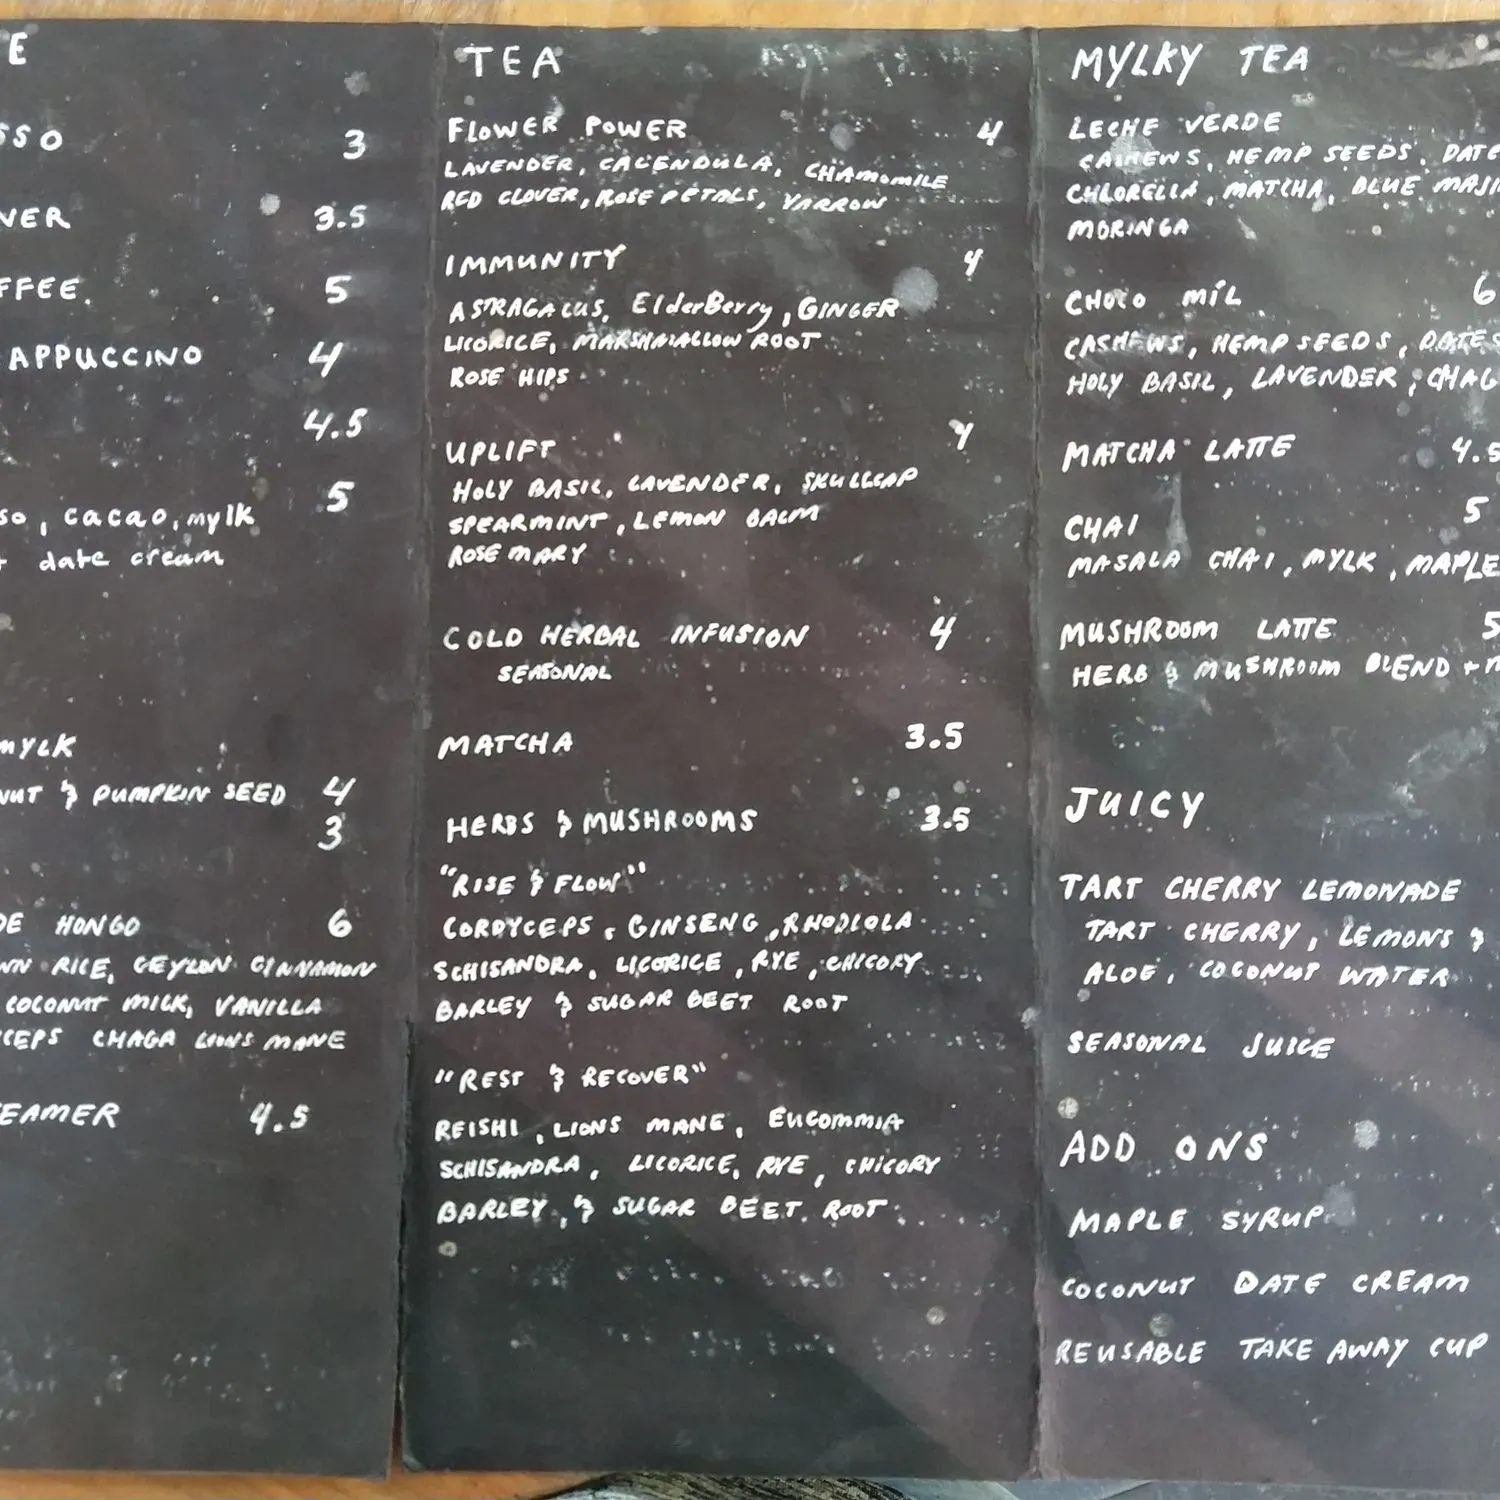 E
SSO 3
VER 3.5
FFEE. 5
APPUCCINO 4
4.5
5
so, cacao, mylk
date cream
MYLK
NUT & PUMPKIN SEED 4
3
DE HONGO 6
WN RICE, CEYLON CINNAMON
COCONUT MILK, VANILLA
CEPS CHAGA LIONS MANE
EAMER 4.5
TEA
FLOWER POWER 4
LAVENDER, CALENDULA, CHAMOMILE
RED CLOVER, ROSE PETALS, YARROW
IMMUNITY 4
ASTRAGALUS, ElderBerry, GINGER
LICORICE, MARSHMALLOW ROOT
ROSE HIPS
UPLIFT 4
HOLY BASIL, LAVENDER, SKULLCAP
SPEARMINT, LEMON BALM
ROSEMARY
COLD HERBAL INFUSION 4
SEASONAL
MATCHA 3.5
HERBS & MUSHROOMS 3.5
"RISE & FLOW"
CORDYCEPS, GINSENG, RHODIOLA
SCHISANDRA, LICORICE, RYE, CHICORY
BARLEY & SUGAR BEET ROOT
"REST & RECOVER"
REISHI, LIONS MANE, EUCOMMIA
SCHISANDRA, LICORICE, RYE, CHICORY
BARLEY, & SUGAR BEET ROOT
MYLKY TEA
LECHE VERDE
CASHEWS, HEMP SEEDS, DATE
CHLORELLA, MATCHA, BLUE MAJI
MORINGA
CHOCO MIL 6
CASHEWS, HEMP SEEDS, DATES
HOLY BASIL, LAVENDER, CHAG
MATCHA LATTE 4.5
CHAI 5
MASALA CHAI, MYLK, MAPLE
MUSHROOM LATTE 5
HERB & MUSHROOM BLEND + M
JUICY
TART CHERRY LEMONADE
TART CHERRY, LEMONS &
ALOE, COCONUT WATER
SEASONAL JUICE
ADD ONS
MAPLE SYRUP
COCONUT DATE CREAM
REUSABLE TAKE AWAY CUP